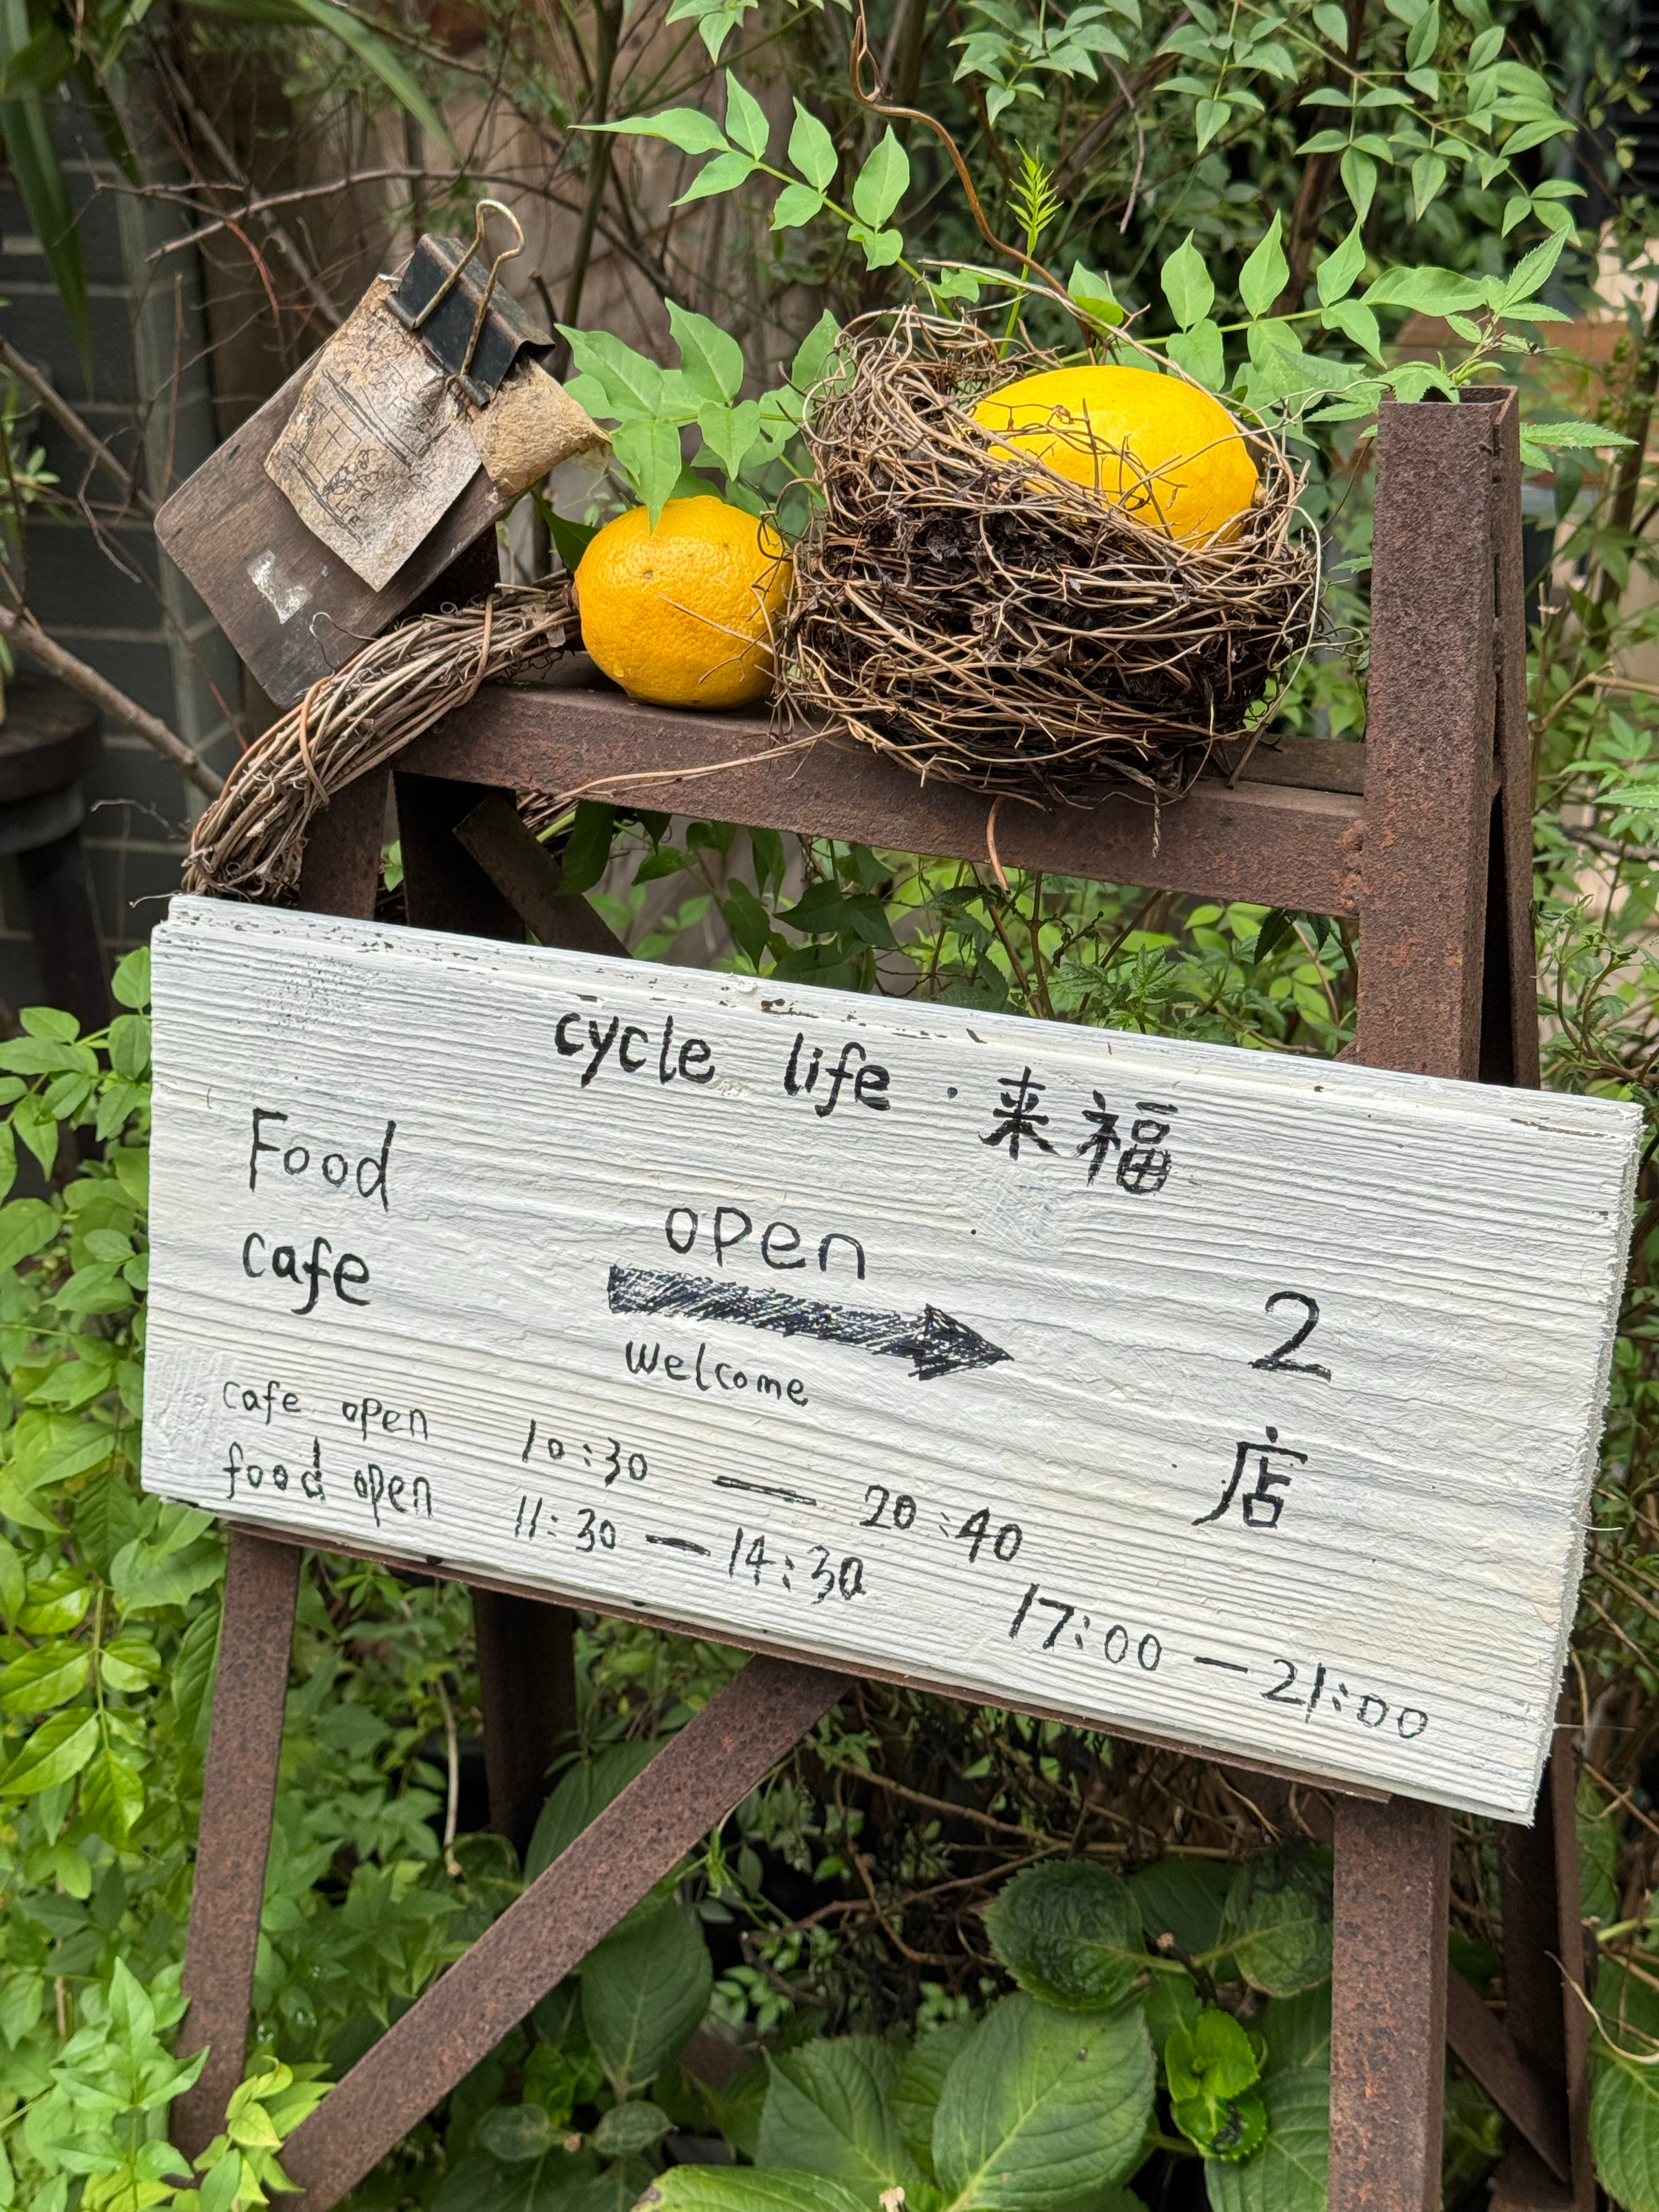 cycle life · 来福
Food
cafe
open
welcome
2
店
cafe open 10:30 — 20:40
food open 11:30 — 14:30 17:00 — 21:00